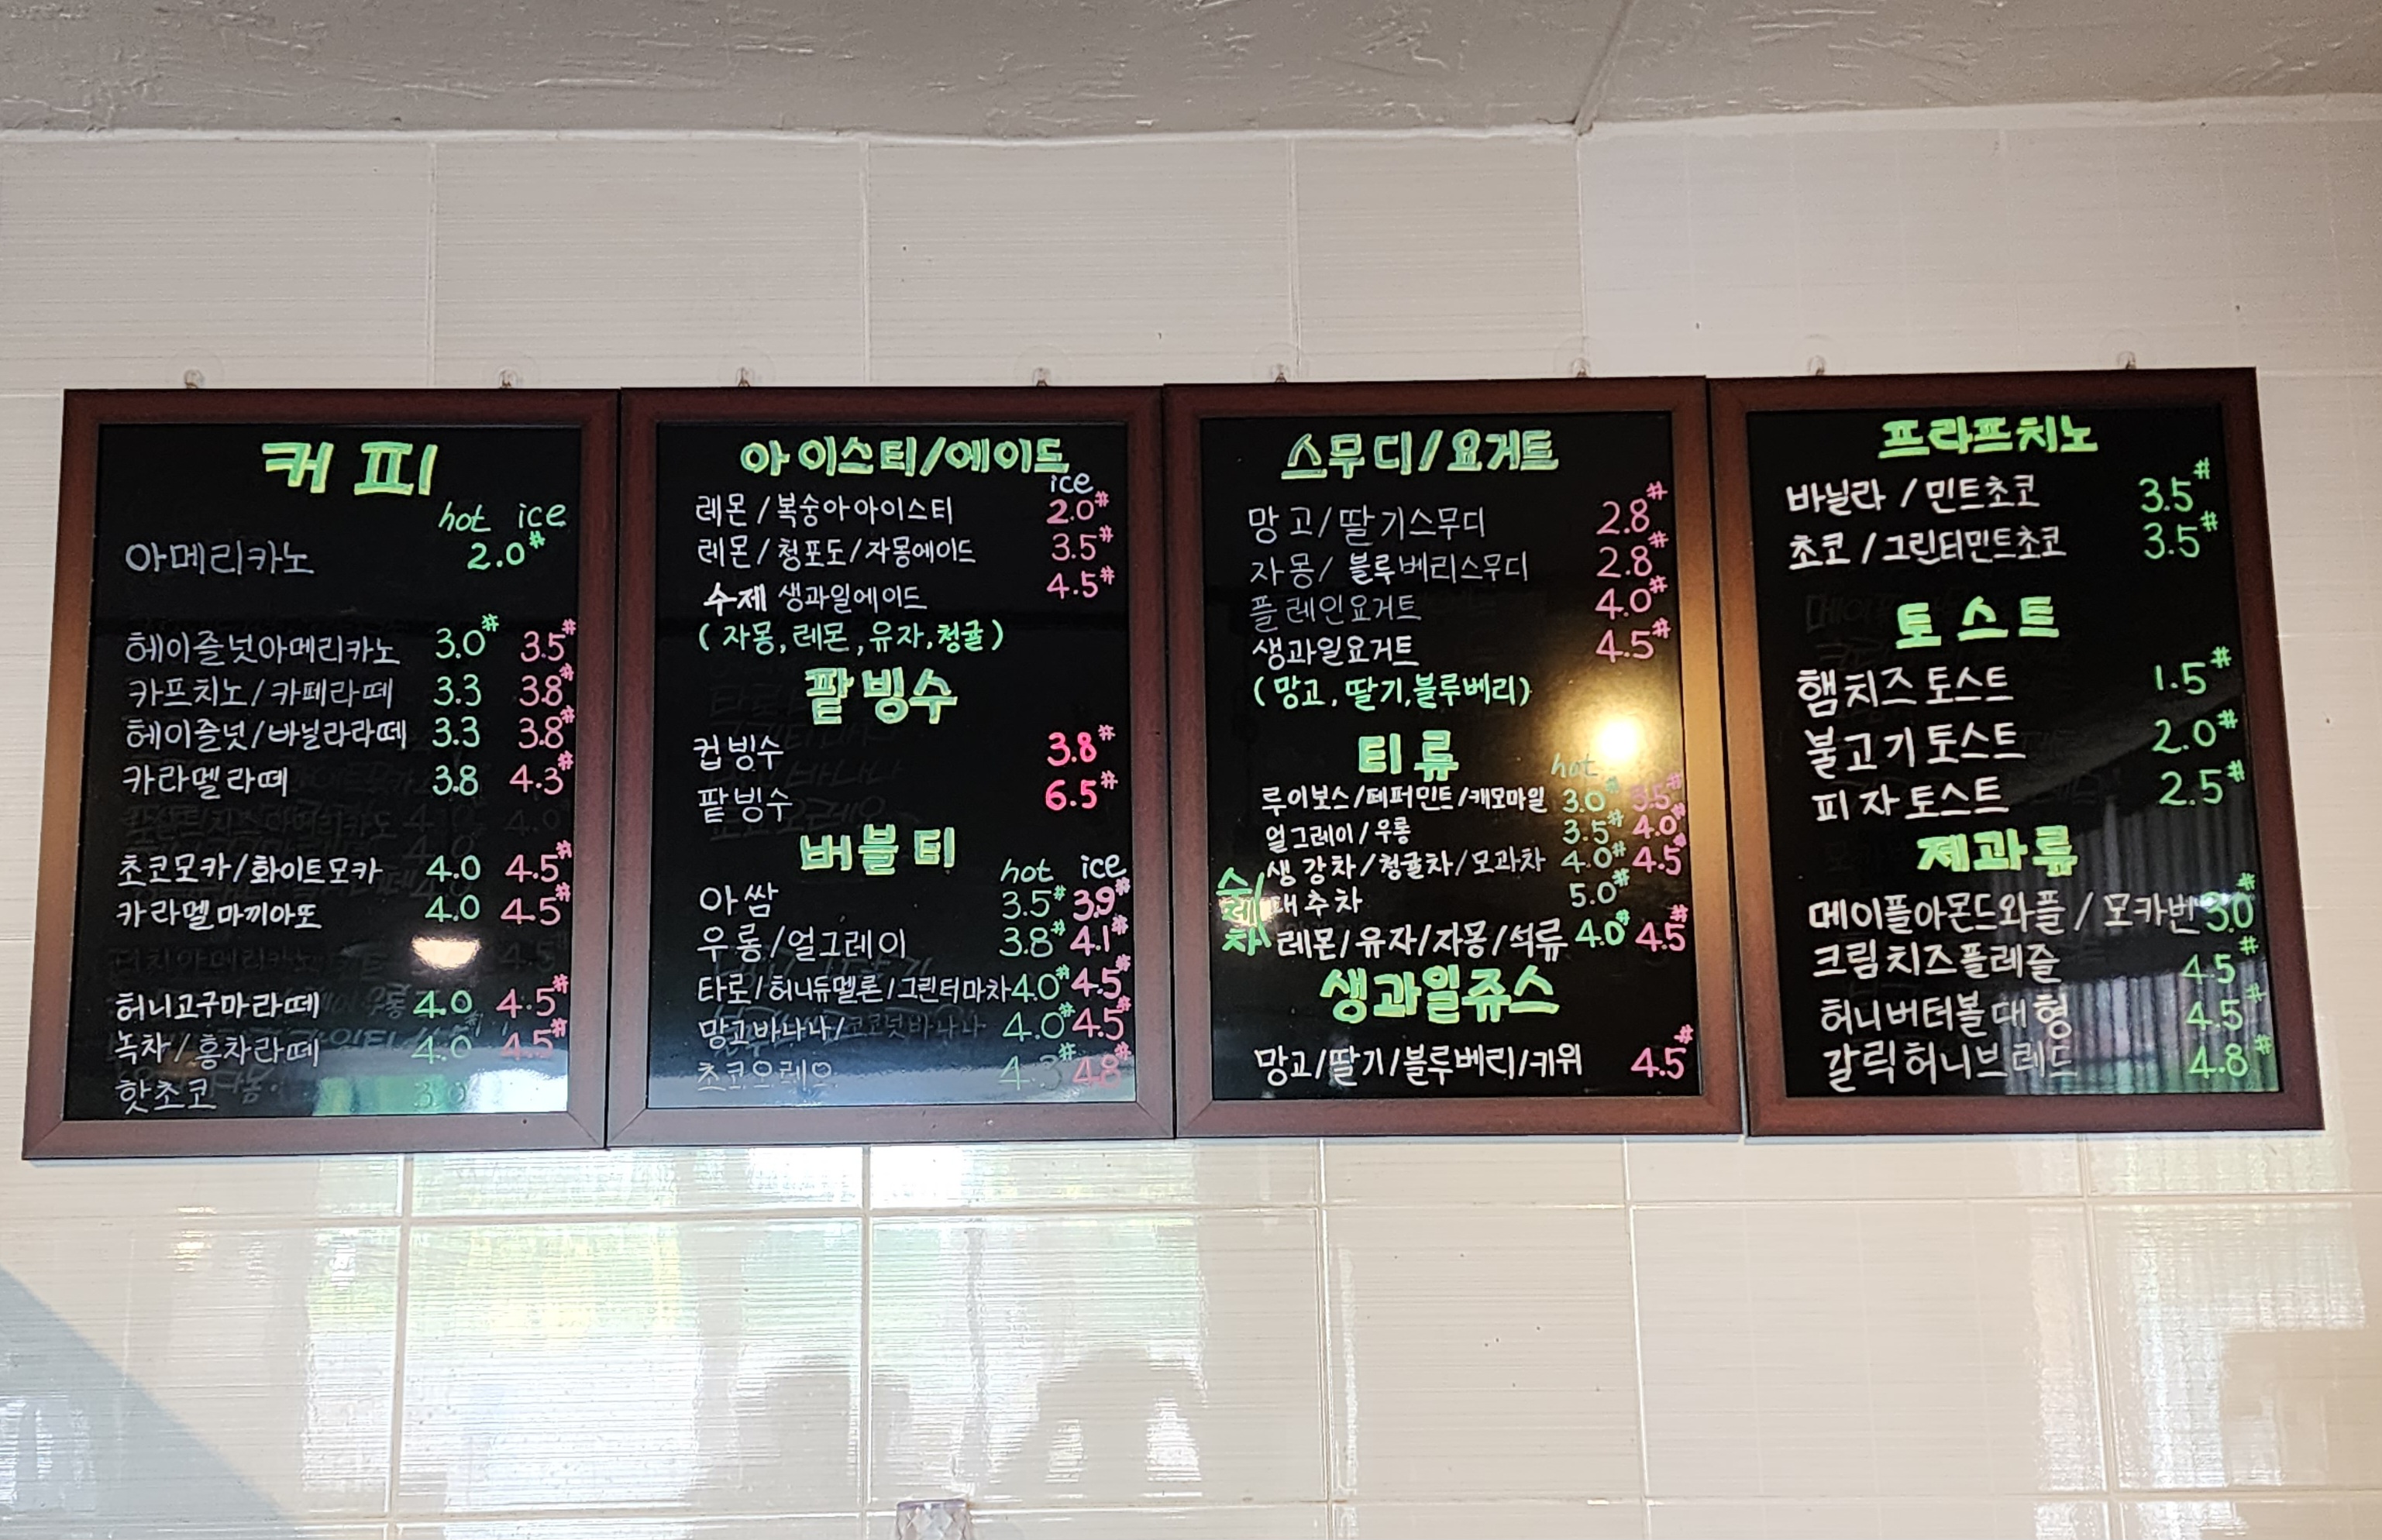 커피
hot ice
아메리카노 2.0#
헤이즐넛아메리카노 3.0# 3.5#
카프치노/카페라떼 3.3 3.8#
헤이즐넛/바닐라라떼 3.3 3.8#
카라멜라떼 3.8 4.3#
초코모카/화이트모카 4.0 4.5#
카라멜마끼아또 4.0 4.5#
허니고구마라떼 4.0 4.5#
녹차/홍차라떼 4.0 4.5#
핫초코 3.0
아이스티/에이드
ice
레몬/복숭아아이스티 2.0#
레몬/청포도/자몽에이드 3.5#
수제 생과일에이드 4.5#
(자몽,레몬,유자,청귤)
팥빙수
컵빙수 3.8#
팥빙수 6.5#
버블티
hot ice
아쌈 3.5# 3.9#
우롱/얼그레이 3.8# 4.1#
타로/허니듀멜론/그린티마차 4.0# 4.5#
망고바나나/코코넛바나나 4.0# 4.5#
초코오레오 4.3# 4.8#
스무디/요거트
망고/딸기스무디 2.8#
자몽/블루베리스무디 2.8#
플레인요거트 4.0#
생과일요거트 4.5#
(망고,딸기,블루베리)
티류
hot
루이보스/페퍼민트/캐모마일 3.0# 3.5#
얼그레이/우롱 3.5# 4.0#
수제차
생강차/청귤차/모과차 4.0# 4.5#
대추차 5.0#
레몬/유자/자몽/석류 4.0# 4.5#
생과일쥬스
망고/딸기/블루베리/키위 4.5#
프라프치노
바닐라/민트초코 3.5#
초코/그린티민트초코 3.5#
토스트
햄치즈토스트 1.5#
불고기토스트 2.0#
피자토스트 2.5#
제과류
메이플아몬드와플/모카번 3.0#
크림치즈플레즐 4.5#
허니버터볼대형 4.5#
갈릭허니브레드 4.8#